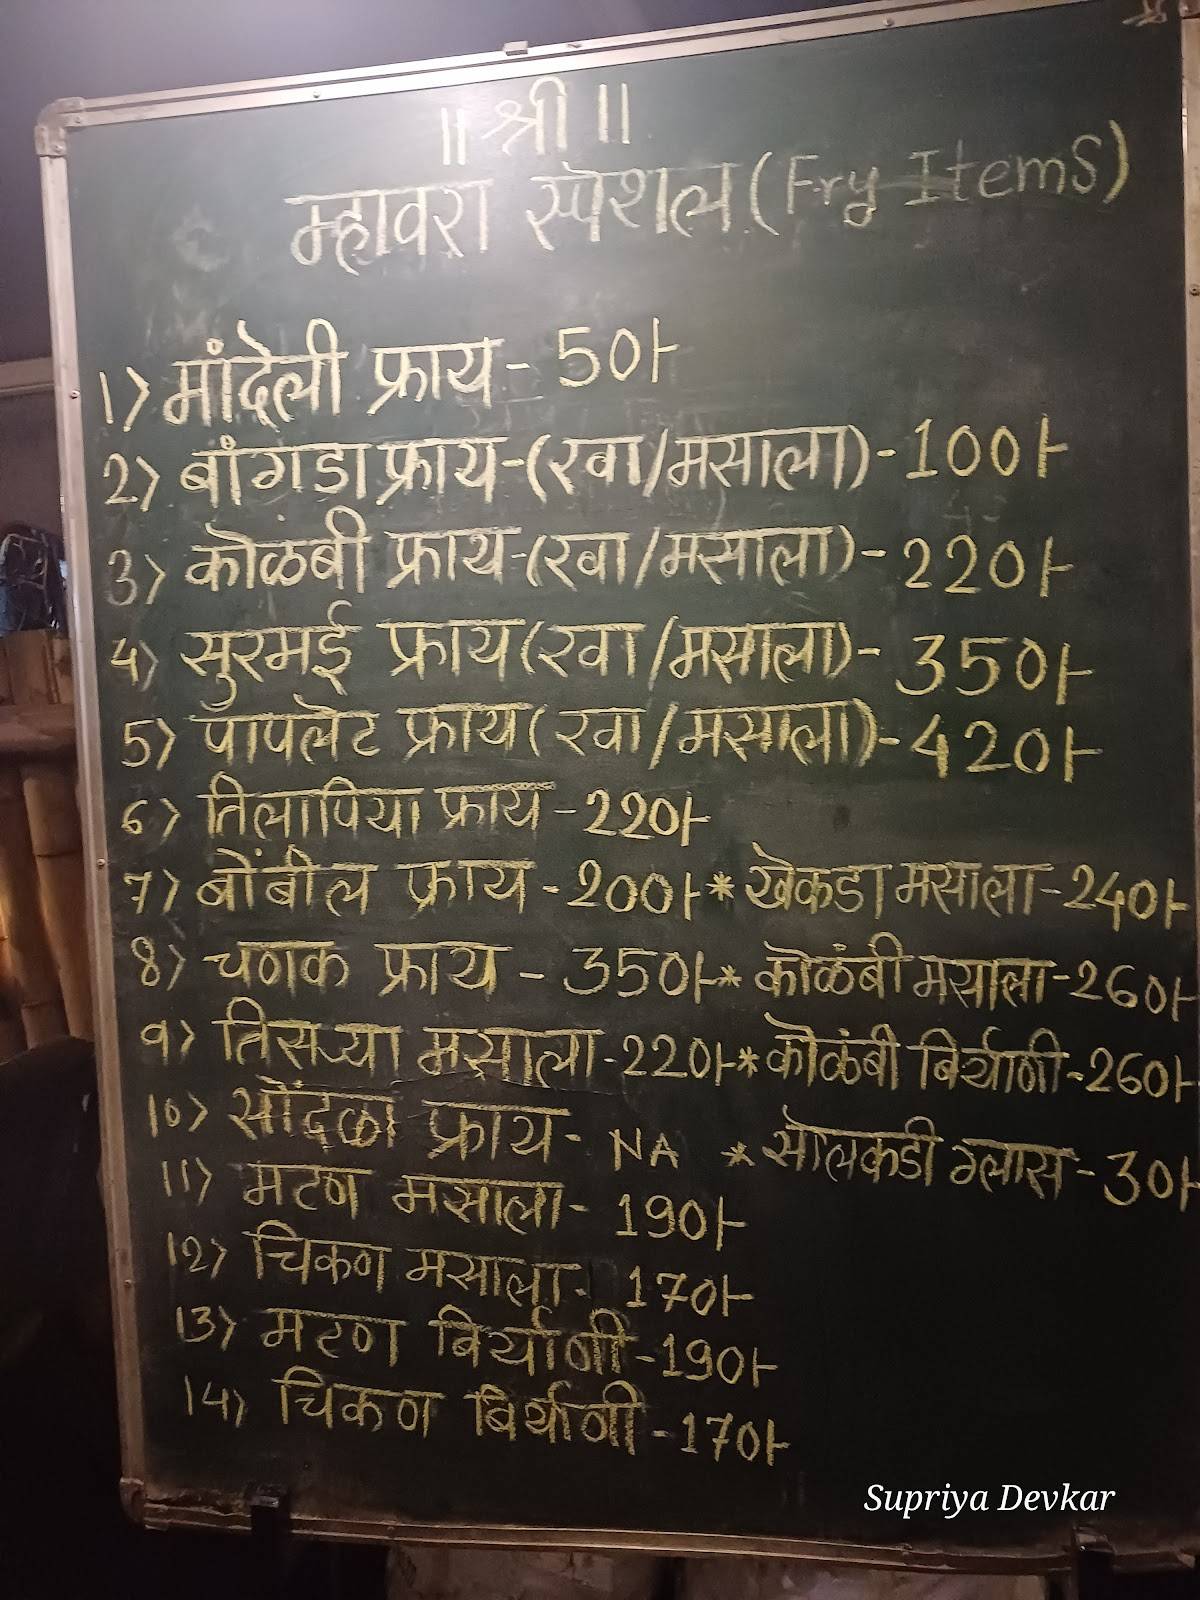 ॥ श्री ॥
म्हावरा स्पेशल (Fry Items)
1) मांदेली फ्राय - 50/-
2) बांगडा फ्राय - (रवा/मसाला) - 100/-
3) कोळंबी फ्राय - (रवा/मसाला) - 220/-
4) सुरमई फ्राय (रवा/मसाला) - 350/-
5) पापलेट फ्राय (रवा/मसाला) - 420/-
6) तिलापिया फ्राय - 220/-
7) बोंबील फ्राय - 200/- * खेकडा मसाला - 240/-
8) चणक फ्राय - 350/- * कोळंबी मसाला - 260/-
9) तिसऱ्या मसाला - 220/- * कोळंबी बिर्याणी - 260/-
10) सौंदळा फ्राय - NA * सोलकडी ग्लास - 30/-
11) मटण मसाला - 190/-
12) चिकण मसाला - 170/-
13) मटण बिर्याणी - 190/-
14) चिकण बिर्याणी - 170/-
Supriya Devkar